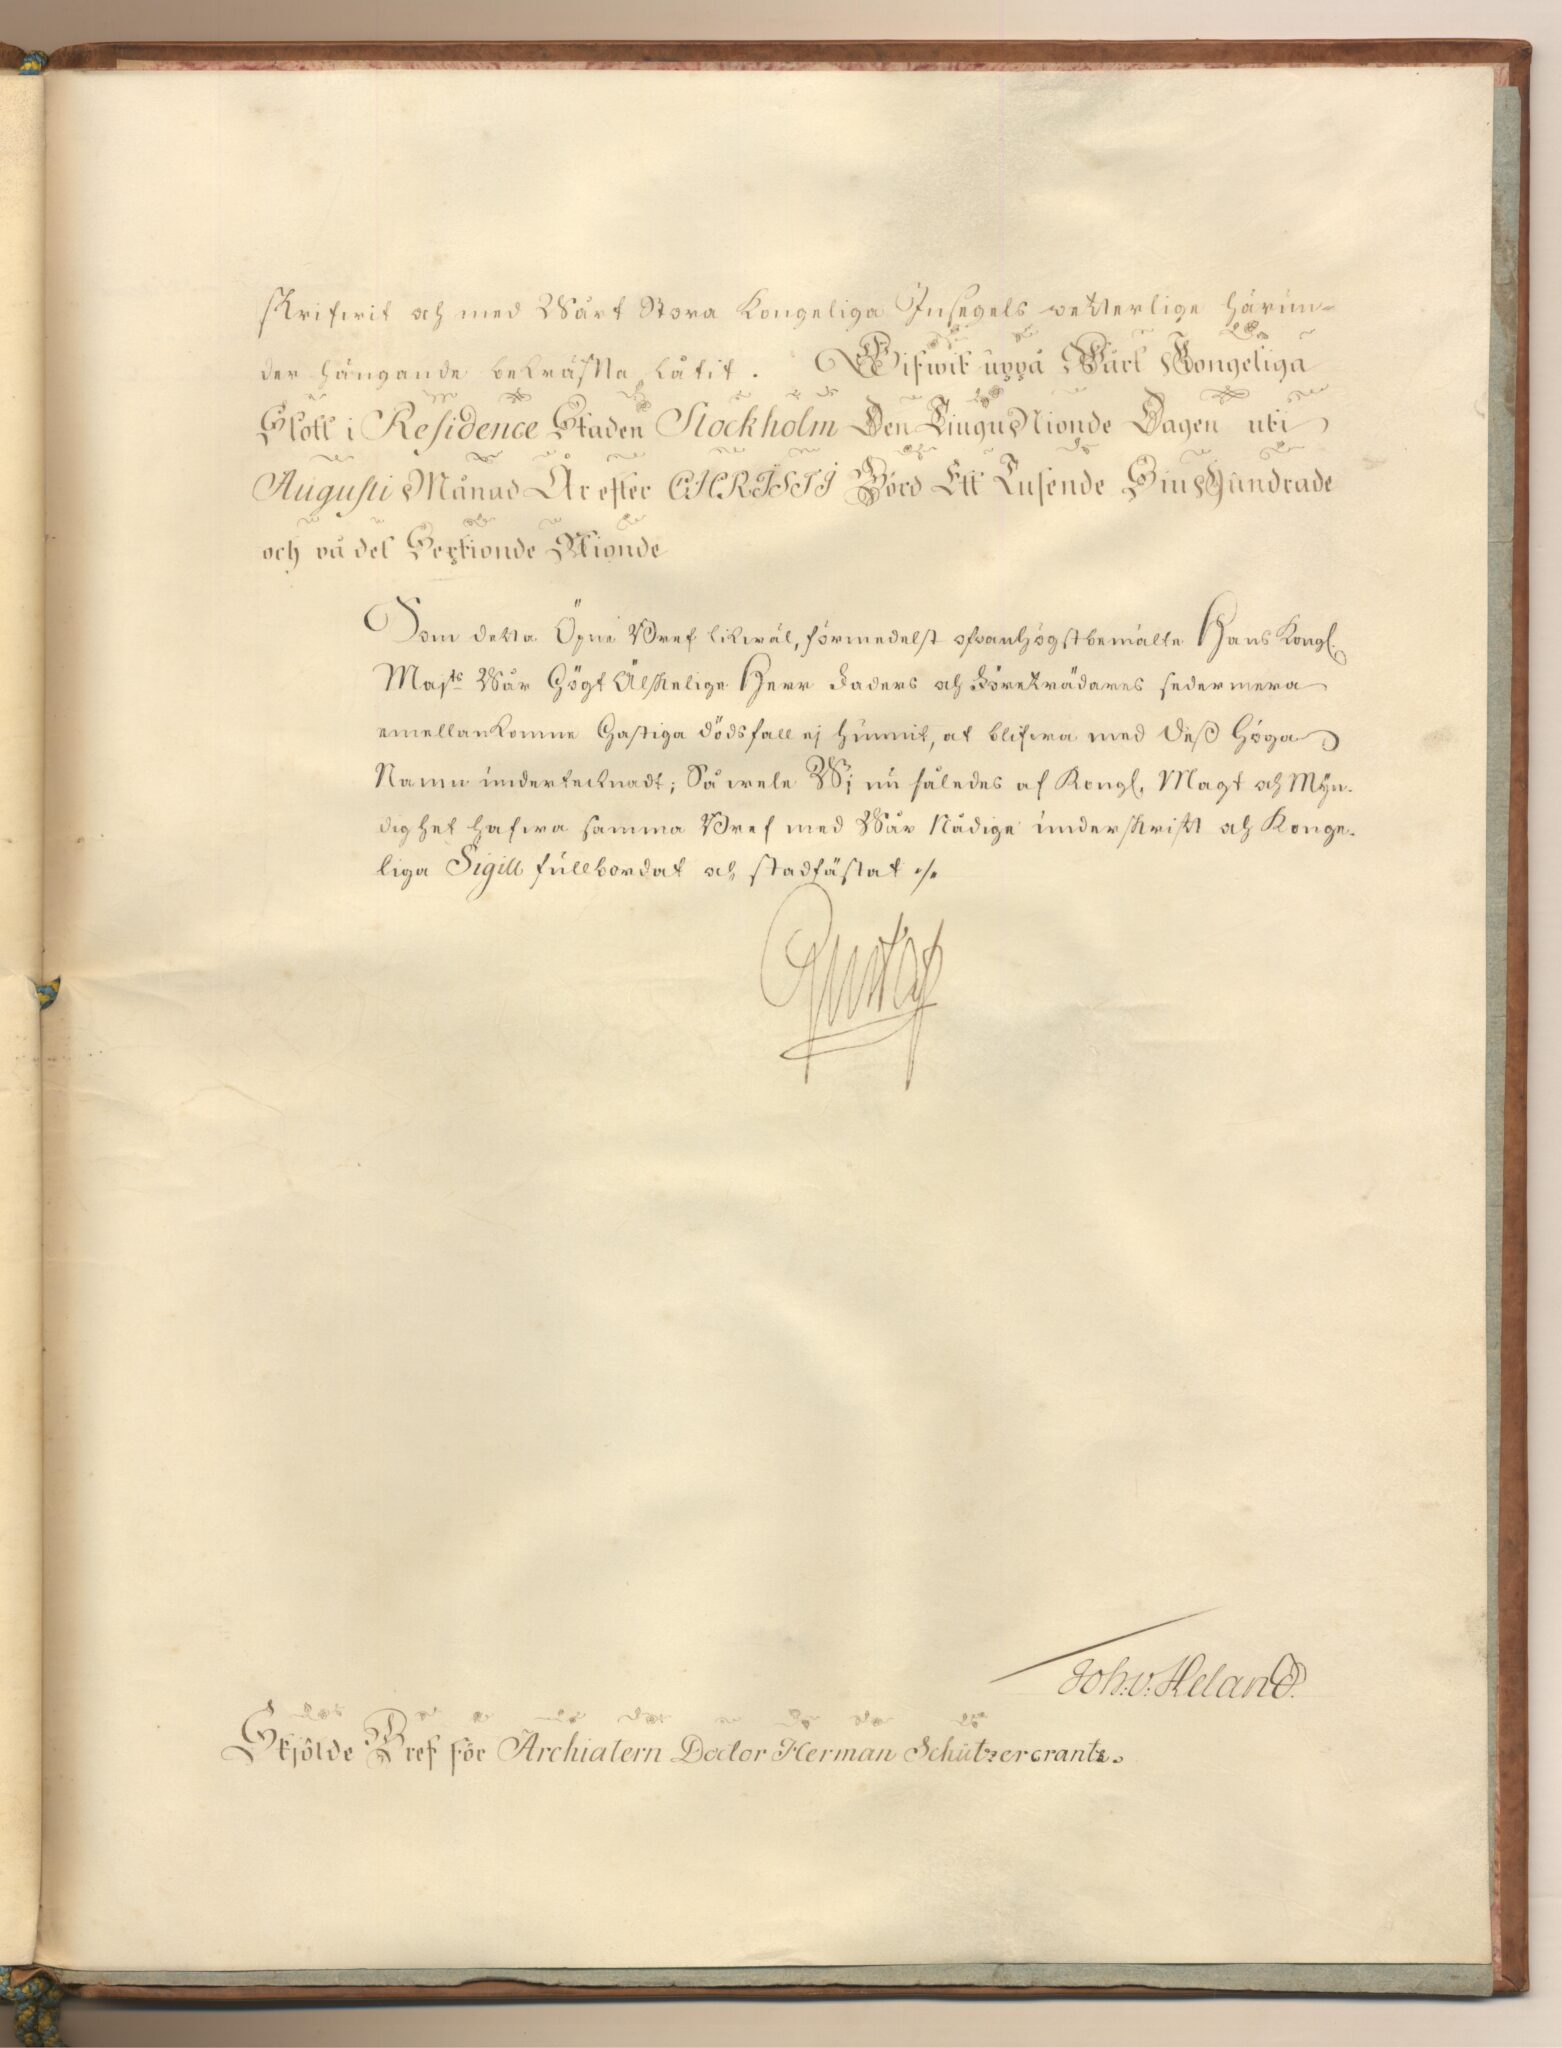 skrifwit och med Wårt Stora Kongeliga Insegels wetterlige härun-
der hängande bekräffta låtit. Gifwit uppå Wårt Kongeliga
Slott i Residence Staden Stockholm Den Tiugu Nionde Dagen uti
Augusti Månad År efter CHRISTI Börd Ett Tusende Siu Hundrade
och på det Sextionde Nionde
Som detta Öpne Bref likwäl, förmedelst ofwanhögstbemälte Hans Kongl.
Majts Wår Högt Älskelige Herr Faders och Företrädares sedermera
emellankomne hastiga dödsfall ej hunnit, at blifwa med Deß Höga
Namn undertecknadt; Så wele Wi nu således af Kongl. Magt och Myn-
dighet hafwa samma Bref med Wår Nådige underskrifft och Konge-
liga Sigill fullbordat och stadfästat ./.
Gustaf
Joh: v: Heland.
Skjölde Bref för Archiatern Doctor Herman Schützercrantz.